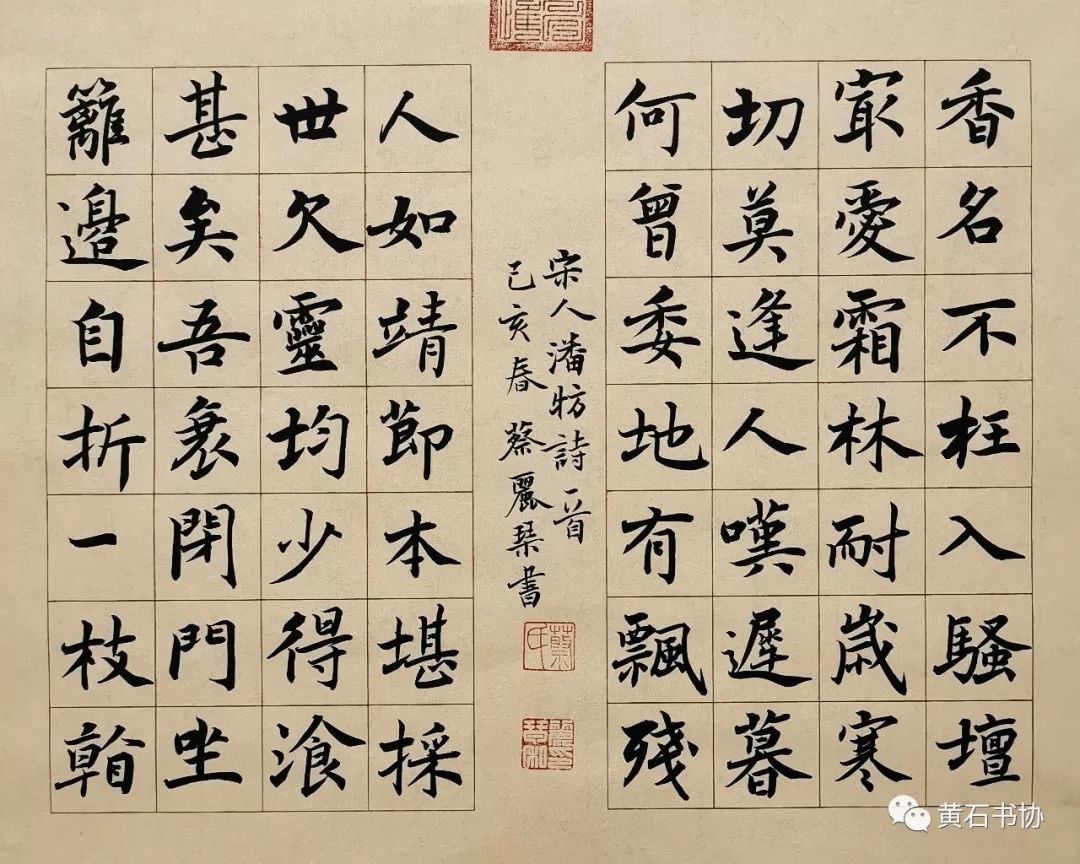 香名不枉入騷壇
冣愛霜林耐歲寒
切莫逢人嘆遲暮
何曾委地有飄殘
宋人潘牥詩一首
己亥春蔡麗琴書
蔡氏
人如靖節本堪採
世欠靈均少得湌
甚矣吾衰閉門坐
籬邊自折一枝看
黄石书协